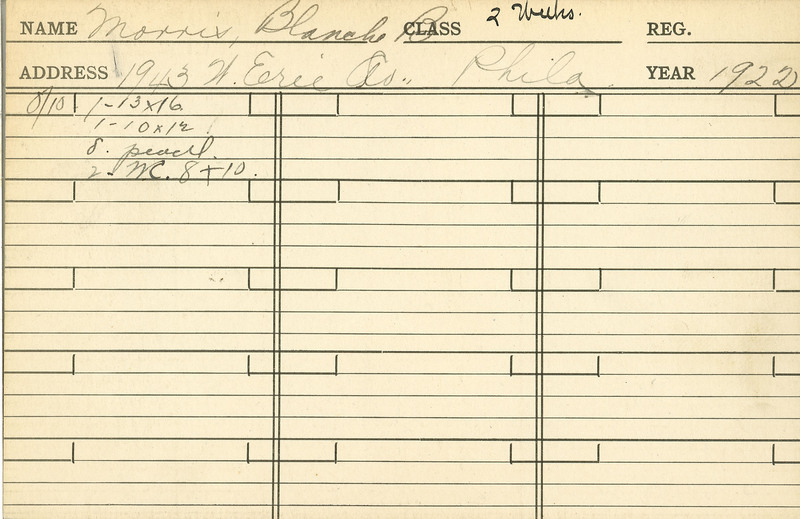 NAME Morris, Blanche B CLASS 2 Weeks. REG.
ADDRESS 1943 W. Erie Av., Phila. YEAR 1922
8/10 1-13x16
1-10x12
8. pencil.
2-WC. 8+10.